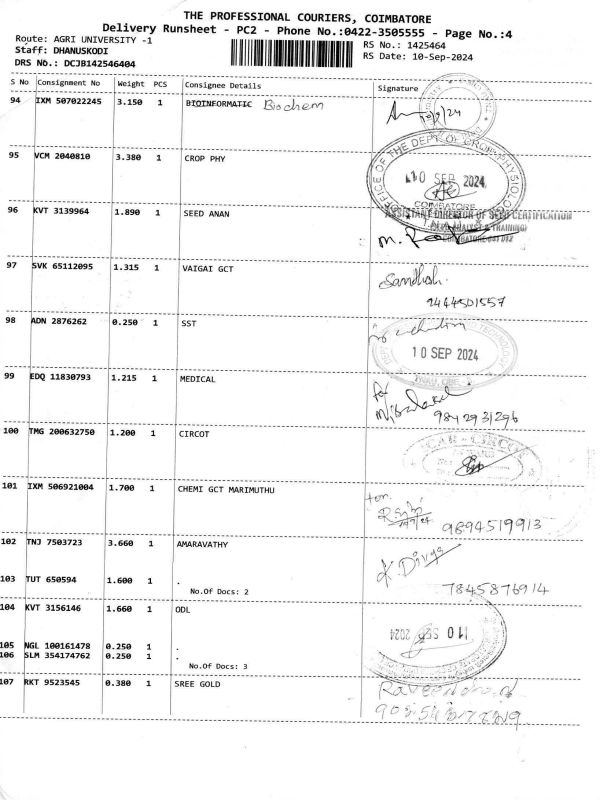 THE PROFESSIONAL COURIERS, COIMBATORE
Delivery Runsheet - PC2 - Phone No.:0422-3505555 - Page No.:4
Route: AGRI UNIVERSITY -1
RS No.: 1425464
Staff: DHANUSKODI
RS Date: 10-Sep-2024
DRS No.: DCJB142546404
S No Consignment No Weight PCS Consignee Details Signature
94 IXM 507022245 3.150 1 BIOINFORMATIC Biochem
95 VCM 2040810 3.380 1 CROP PHY
OFFICE OF THE DEPT. OF CROP PHYSIOLOGY
10 SEP 2024
COIMBATORE
96 KVT 3139964 1.890 1 SEED ANAN
ASSISTANT DIRECTOR OF SEED CERTIFICATION
97 SVK 65112095 1.315 1 VAIGAI GCT
Santhosh
98 ADN 2876262 0.250 1 SST
10 SEP 2024
99 EDQ 11830793 1.215 1 MEDICAL
for
9842931296
100 TMG 200632750 1.200 1 CIRCOT
101 IXM 506921004 1.700 1 CHEMI GCT MARIMUTHU
9894519913
102 TNJ 7503723 3.660 1 AMARAVATHY
K. Divya
103 TUT 650594 1.600 1 .
7845876914
No.Of Docs: 2
104 KVT 3156146 1.660 1 ODL
10 SEP 2024
105 NGL 100161478 0.250 1 .
106 SLM 354174762 0.250 1 .
No.Of Docs: 3
107 RKT 9523545 0.380 1 SREE GOLD